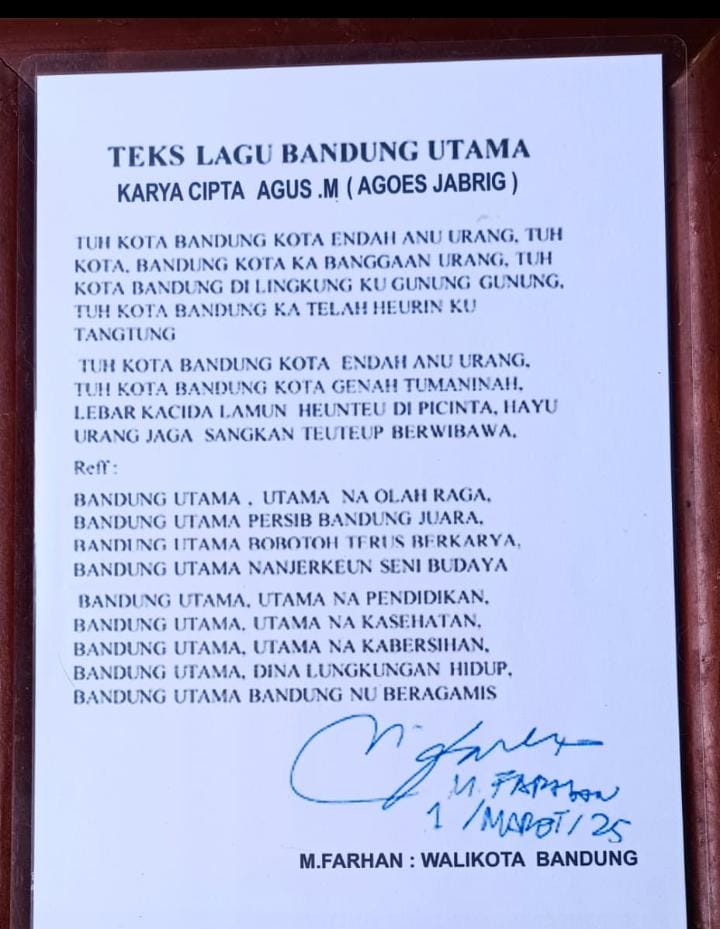 TEKS LAGU BANDUNG UTAMA
KARYA CIPTA AGUS .M ( AGOES JABRIG )
TUH KOTA BANDUNG KOTA ENDAH ANU URANG, TUH
KOTA, BANDUNG KOTA KA BANGGAAN URANG, TUH
KOTA BANDUNG DI LINGKUNG KU GUNUNG GUNUNG,
TUH KOTA BANDUNG KA TELAH HEURIN KU
TANGTUNG
TUH KOTA BANDUNG KOTA ENDAH ANU URANG,
TUH KOTA BANDUNG KOTA GENAH TUMANINAH,
LEBAR KACIDA LAMUN HEUNTEU DI PICINTA, HAYU
URANG JAGA SANGKAN TEUTEUP BERWIBAWA,
Reff :
BANDUNG UTAMA , UTAMA NA OLAH RAGA,
BANDUNG UTAMA PERSIB BANDUNG JUARA,
BANDUNG UTAMA BOBOTOH TERUS BERKARYA,
BANDUNG UTAMA NANJERKEUN SENI BUDAYA
BANDUNG UTAMA, UTAMA NA PENDIDIKAN,
BANDUNG UTAMA, UTAMA NA KASEHATAN,
BANDUNG UTAMA, UTAMA NA KABERSIHAN,
BANDUNG UTAMA, DINA LUNGKUNGAN HIDUP,
BANDUNG UTAMA BANDUNG NU BERAGAMIS
M. FARHAN
1 /MARET/ 25
M.FARHAN : WALIKOTA BANDUNG